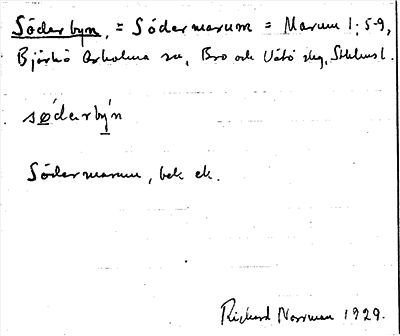 Söderbyn, = Södermarum = Marum 1:5-9,
Björkö Arholma sn, Bro och Vätö skg, Sthlms l.
sødarby´n
Södermarum, bek ek.
Rickard Norrman 1929.